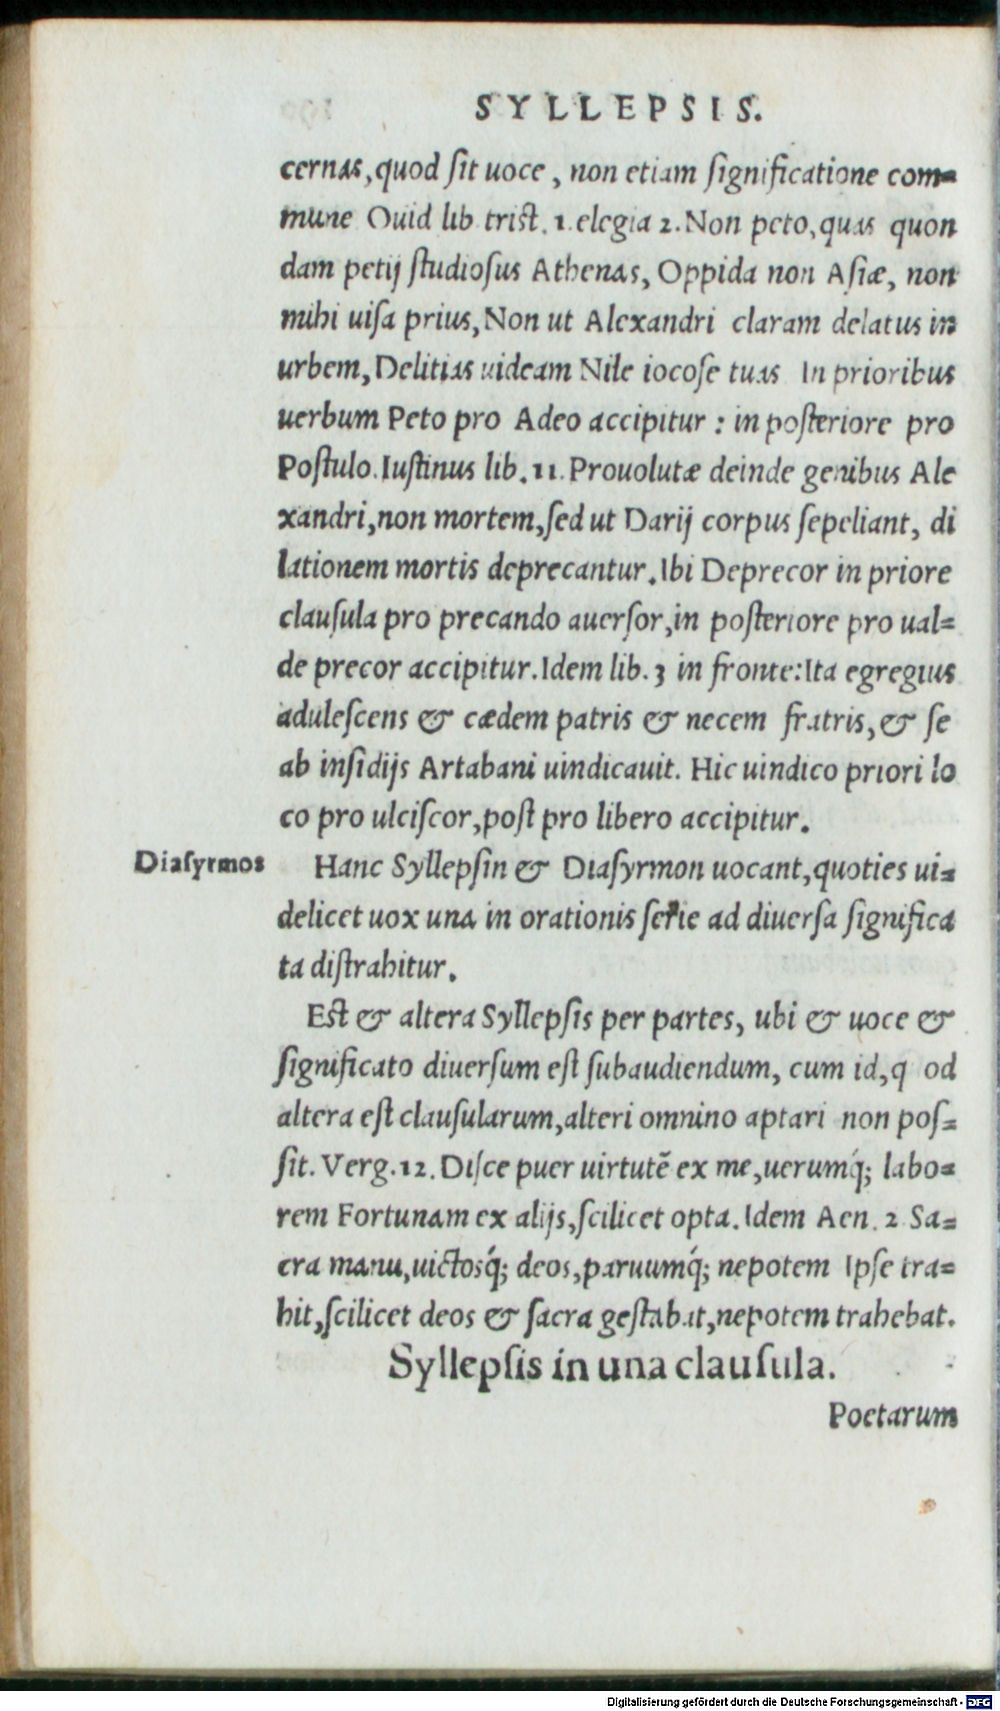 SYLLEPSIS.
cernas, quod ſit uoce, non etiam ſignificatione com=
mune Ouid lib trist. 1. elegia 2. Non peto, quas quon
dam petij ſtudioſus Athenas, Oppida non Aſiæ, non
mihi uiſa prius, Non ut Alexandri claram delatus in
urbem, Delitias uideam Nile iocoſe tuas In prioribus
uerbum Peto pro Adeo accipitur : in poſteriore pro
Poſtulo. Iuſtinus lib. 11. Prouolutæ deinde genibus Ale
xandri, non mortem, ſed ut Darij corpus ſepeliant, di
lationem mortis deprecantur. Ibi Deprecor in priore
clauſula pro precando auerſor, in poſteriore pro ual=
de precor accipitur. Idem lib. 3 in fronte: Ita egregius
aduleſcens & cædem patris & necem fratris, & ſe
ab inſidijs Artabani uindicauit. Hic uindico priori lo
co pro ulciſcor, poſt pro libero accipitur.
Diaſyrmos
Hanc Syllepſin & Diaſyrmon uocant, quoties ui=
delicet uox una in orationis ſerie ad diuerſa ſignifica
ta diſtrahitur.
Eſt & altera Syllepſis per partes, ubi & uoce &
ſignificato diuerſum eſt ſubaudiendum, cum id, q od
altera eſt clauſularum, alteri omnino aptari non poſ=
ſit. Verg. 12. Diſce puer uirtutē ex me, uerumq́; labo=
rem Fortunam ex alijs, ſcilicet opta. Idem Aen. 2 Sa=
cra manu, uictosq́; deos, paruumq́; nepotem Ipſe tra=
hit, ſcilicet deos & ſacra geſtabat, nepotem trahebat.
Syllepſis in una clauſula.
Poetarum
Digitalisierung gefördert durch die Deutsche Forschungsgemeinschaft - DFG